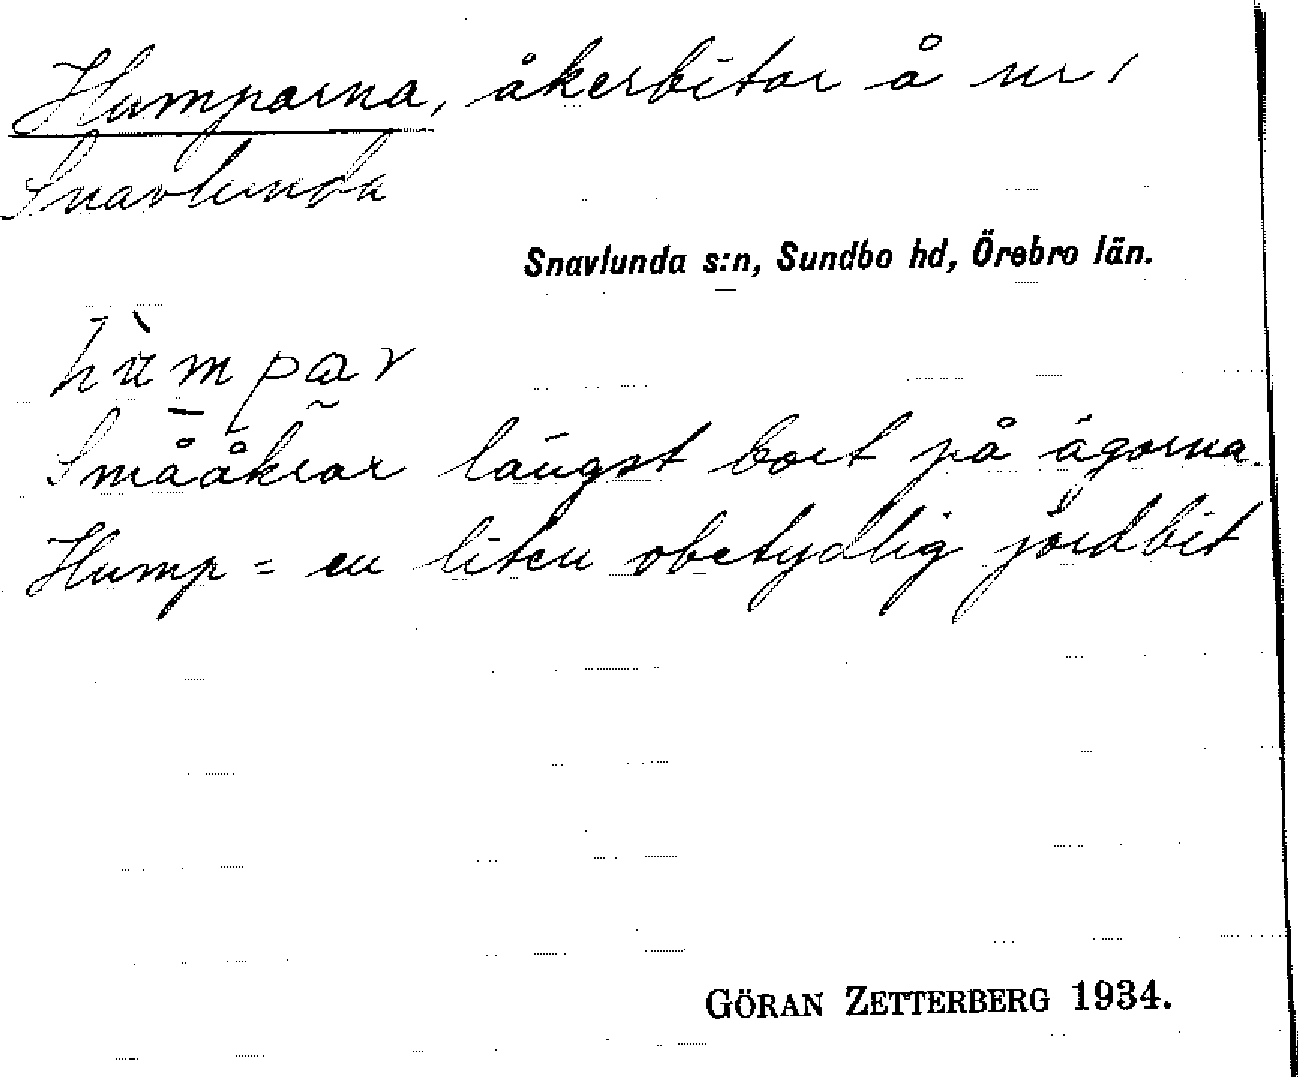 Humparna, åkerbitar å nr 1
Snavlunda
Snavlunda s:n, Sundbo hd, Örebro län.
hùmpar
Smååkrar längst bort på ägorna.
Hump = en liten obetydlig jordbit
GÖRAN ZETTERBERG 1934.